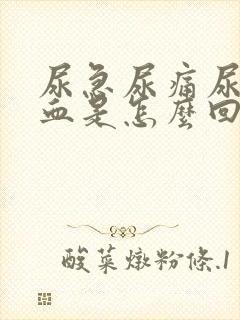 尿急尿痛尿
血是怎麼回
酸菜燉粉條.1